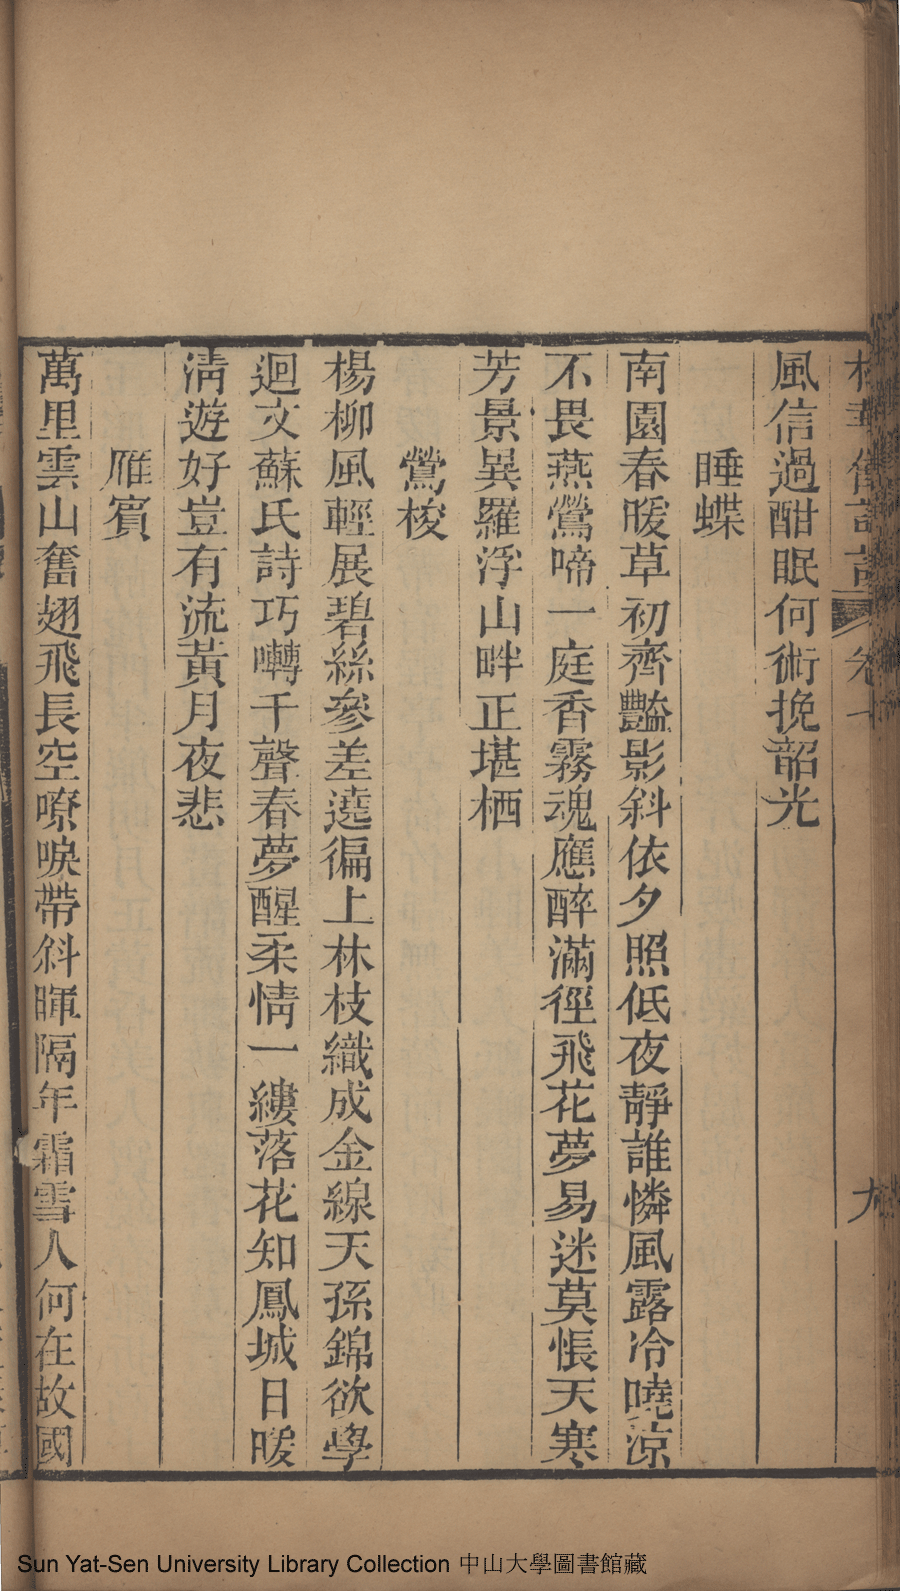 風信過酣眠何術挽韶光
睡蝶
南園春暖草初齊豔影斜依夕照低夜靜誰憐風露冷曉涼
不畏燕鶯啼一庭香霧魂應醉滿徑飛花夢易迷莫悵天寒
芳景異羅浮山畔正堪栖
鶯梭
楊柳風輕展碧絲參差遶徧上林枝織成金線天孫錦欲學
迴文蘇氏詩巧囀千聲春夢醒柔情一縷落花知鳳城日暖
淸遊好豈有流黃月夜悲
雁賓
萬里雲山奮翅飛長空嘹唳帶斜暉隔年霜雪人何在故國
Sun Yat-Sen University Library Collection 中山大學圖書館藏